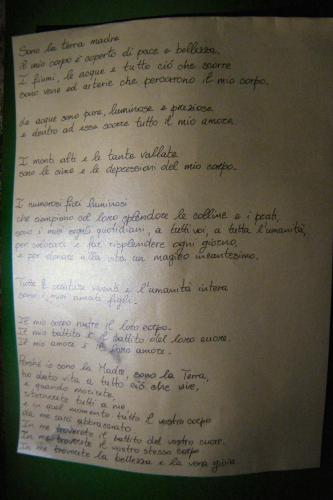 Sono la terra madre
il mio corpo è coperto di pace e bellezza.
I fiumi, le acque e tutto ciò che scorre
sono vene ed arterie che percorrono il mio corpo.
Le acque sono pure, luminose e preziose
e dentro ad esse scorre tutto il mio amore.
I monti alti e le tante vallate
sono le cime e le depressioni del mio corpo.
I numerosi fiori luminosi
che riempiono col loro splendore le colline e i prati,
sono i miei regali quotidiani, a tutti voi, a tutta l'umanità,
per colorare e far risplendere ogni giorno,
e per donare alla vita un magico incantesimo.
Tutte le creature viventi e l'umanità intera
sono i miei amati figli.
Il mio corpo nutre il loro corpo.
Il mio battito è il battito del loro cuore.
Il mio amore è il loro amore.
Perché io sono la Madre, sono la Terra,
ho dato vita a tutto ciò che vive,
e quando morirete,
ritornerete tutti a me
e in quel momento tutto il vostro corpo
da me sarà abbracciato
In me troverete il battito del vostro cuore.
In me troverete il vostro stesso corpo
In me troverete la bellezza e la vera gioia